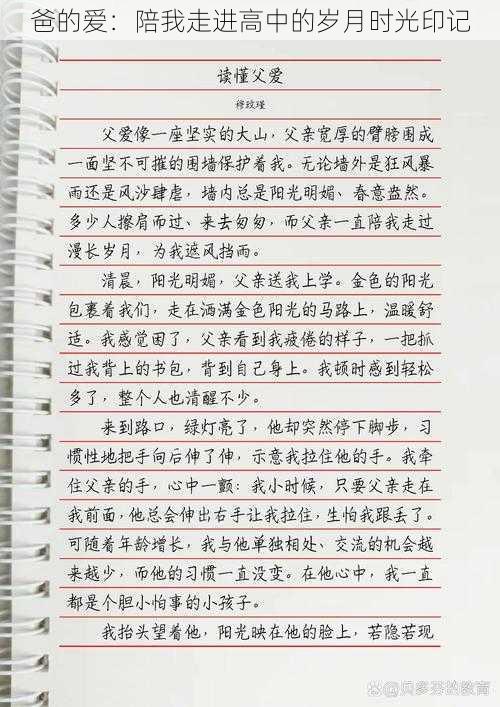 爸的爱：陪我走进高中的岁月时光印记
读懂父爱
穆玟瑾
父爱像一座坚实的大山，父亲宽厚的臂膀围成
一面坚不可摧的围墙保护着我。无论墙外是狂风暴
雨还是风沙肆虐，墙内总是阳光明媚、春意盎然。
多少人擦肩而过、来去匆匆，而父亲一直陪我走过
漫长岁月，为我遮风挡雨。
清晨，阳光明媚，父亲送我上学。金色的阳光
包裹着我们，走在洒满金色阳光的马路上，温暖舒
适。我感觉困了，父亲看到我疲倦的样子，一把抓
过我背上的书包，背到自己身上。我顿时感到轻松
多了，整个人也清醒不少。
来到路口，绿灯亮了，他却突然停下脚步，习
惯性地把手向后伸了伸，示意我拉住他的手。我牵
住父亲的手，心中一颤：我小时候，只要父亲走在
我前面，他总会伸出右手让我拉住，生怕我跟丢了。
可随着年龄增长，我与他单独相处、交流的机会越
来越少，而他的习惯一直没变。在他心中，我一直
都是个胆小怕事的小孩子。
我抬头望着他，阳光映在他的脸上，若隐若现
@贝多芬的教育